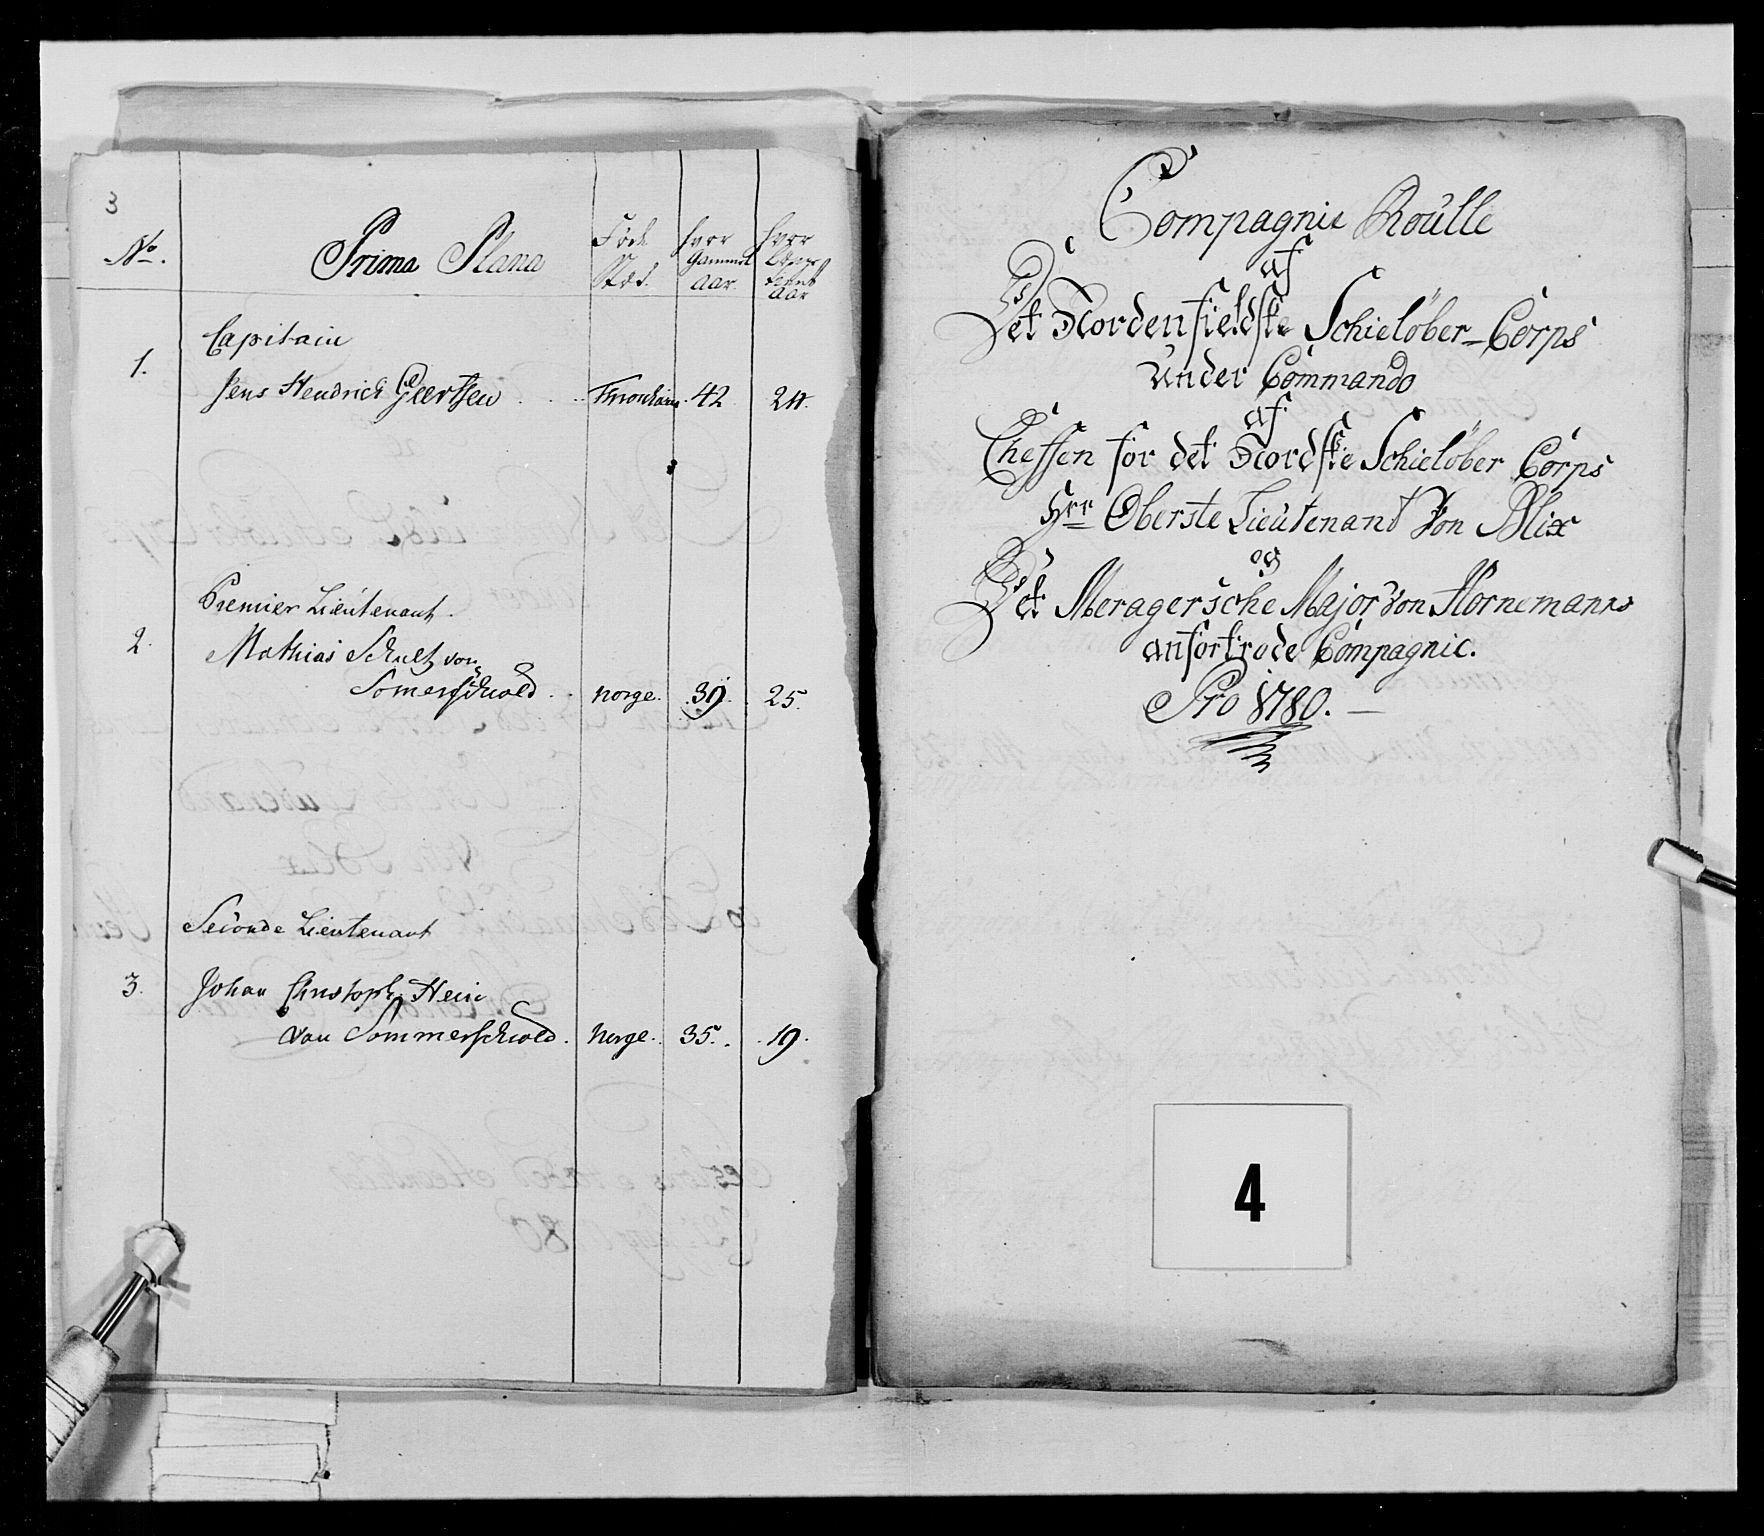 3
No.
Prima Plana
Føde
Sted.
hvor
Gammel
Aar
hvor
Længe
tient
Aar
Capitain
1.
Jens Hendrich Geertsen . . . Tronhiem. 42 24.
Premier Lieutenant.
2.
Mathias Schultz von
Somerschield . . Norge. 39. 25.
Seconde Lieutenant
3.
Johan Christoph Hein
von Sommerschield. Norge. 35. 19.
Compagnie Roulle
af
Det Nordenfieldske Schieløber-Corps
Under Commando
af
Cheffen for det Nordske Schieløber Corps
Hrr Oberste Lieutenant Von Blix
og
Det Meragersche Major Von Hornemanns
anfortrode Compagnie.
Pro 1780. —
4